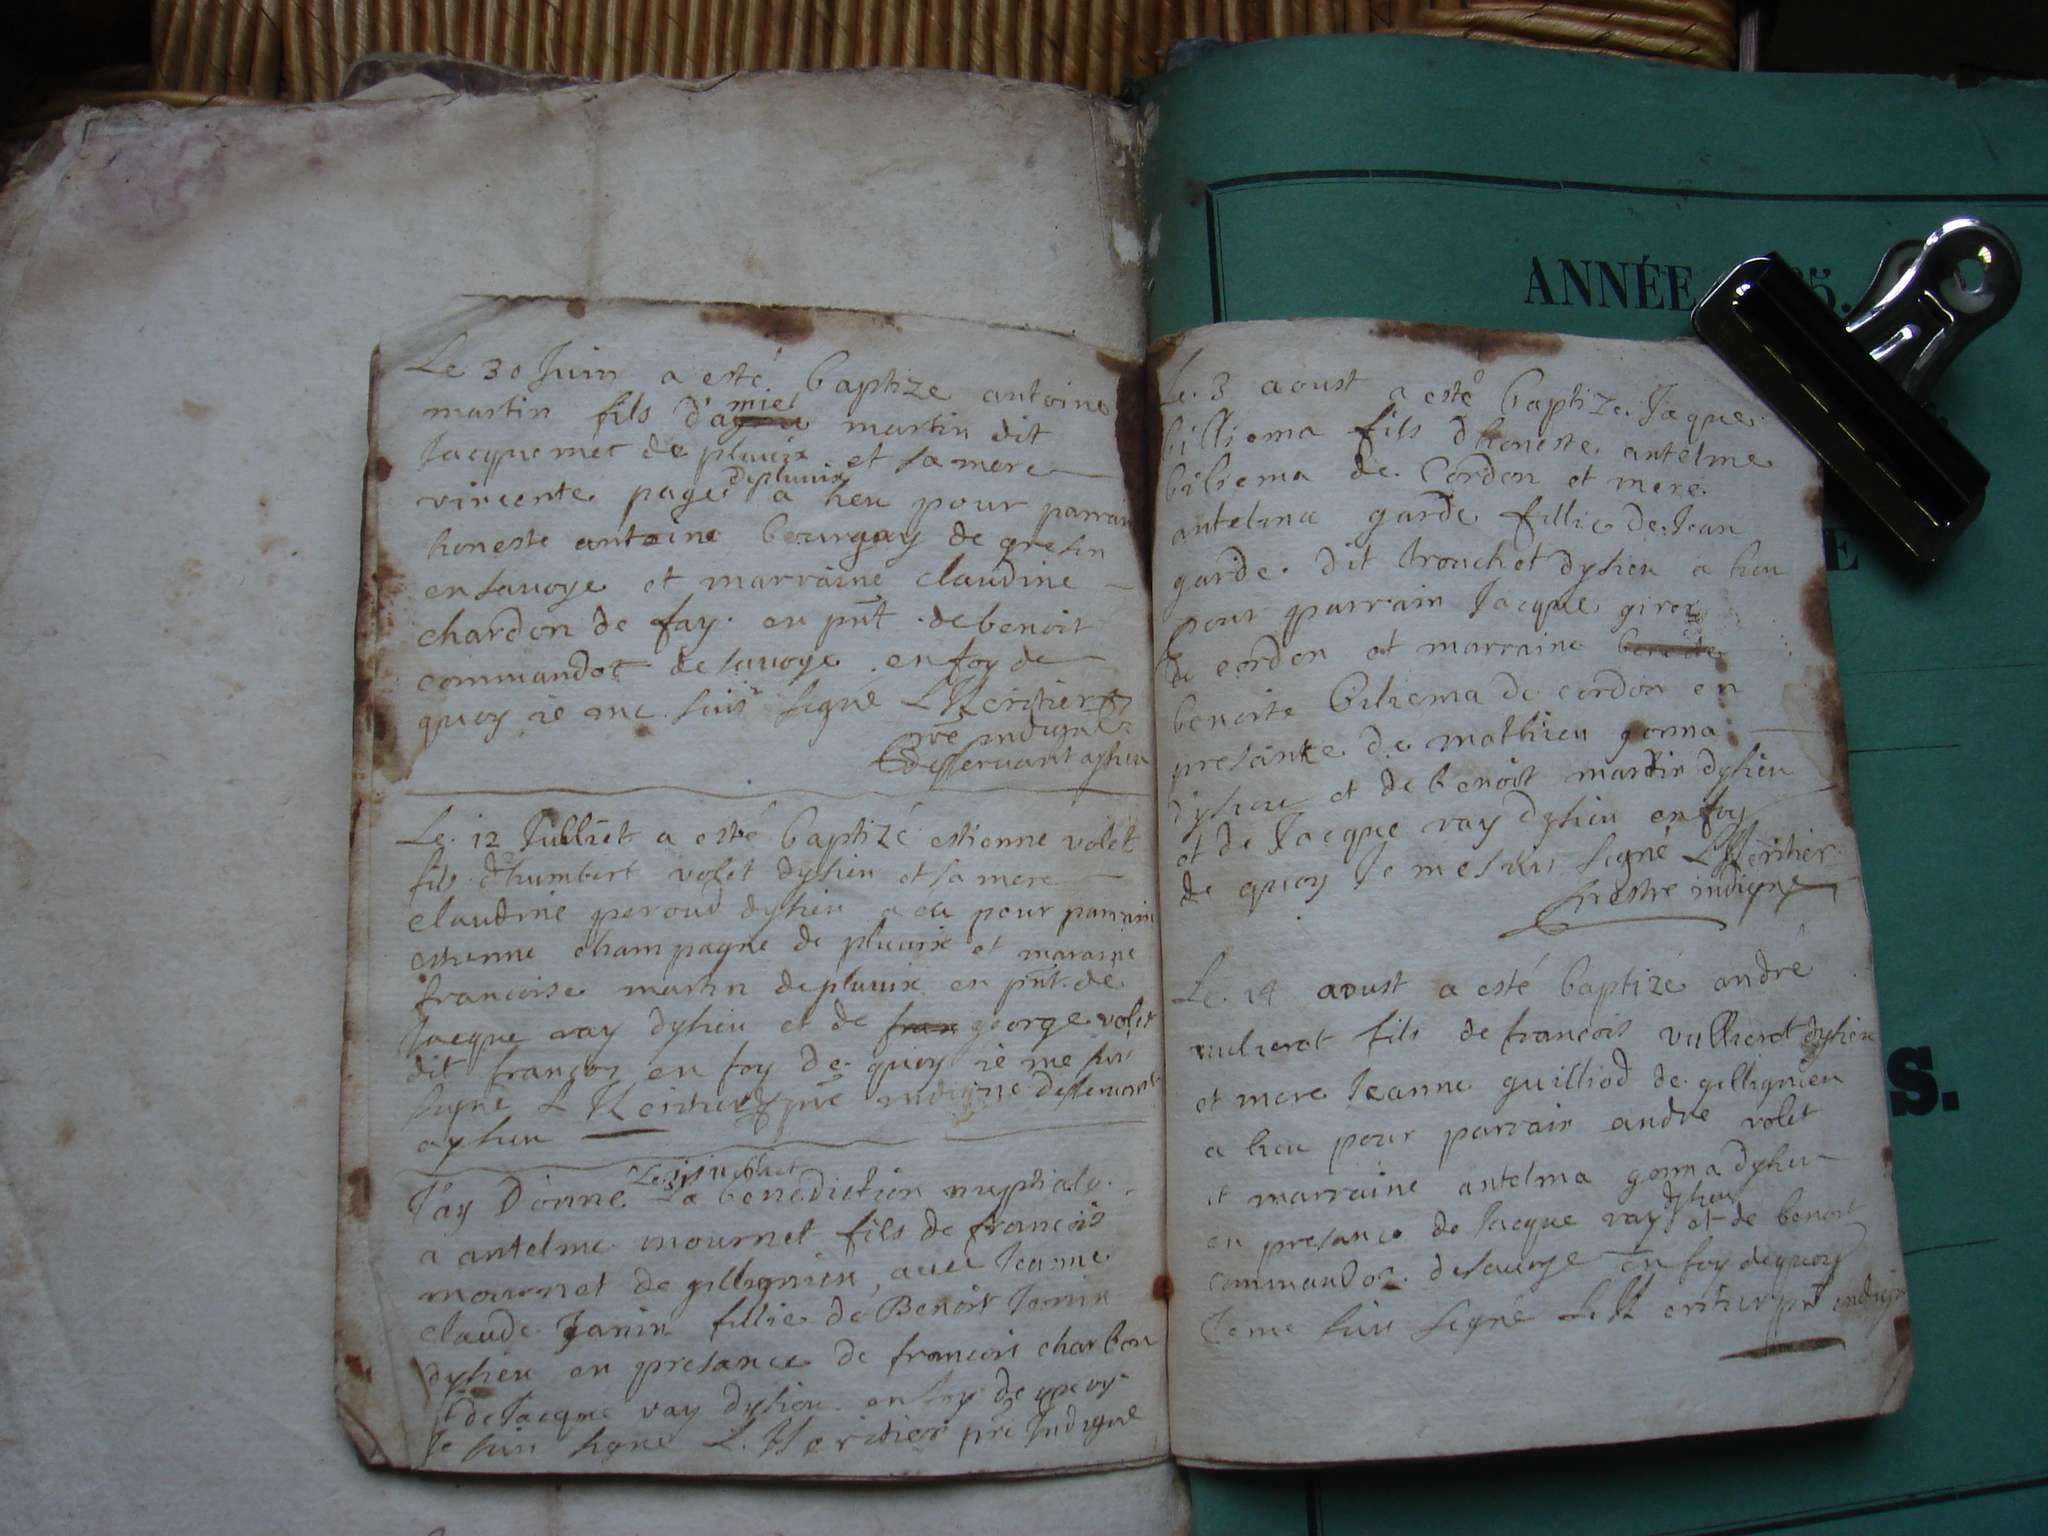 Le 30 Juin a esté baptize antoine
martin fils d'amie martin dit
Jacquemet de pluuix et sa mere
vincente page depluuix a heu pour parrain
honeste antoine bourgay de gresin
en sauoye et marraine claudine
chardon de fay. en pnt de benoit
commandot de sauoye. en foy de
quoy ie me suis signé L'Heritier
pre indigne
desseruant aysieu
Le 12 Julliet a esté baptizé estienne volet
fils d'humbert volet dysieu et sa mere
claudine peroud dysieu a eu pour parrain
estienne champagne de pluuix et maraine
francoise martin depluuix en pnt de
Jacque ray dysieu et de fran george volet
dit françois en foy de quoy ie me suis
signé L'Heritier pre indigne desseruant
aysieu
Le 31 julliet
J'ay Donné La benediction nuptiale
a antelme mournet fils de francois
mournet de gillignieu, auec Jeanne
claude Janin fillie de Benoit Janin
dysieu en presance de francois charbon
et de Jacque ray dysieu en foy de quoy
Je suis signé L'Heritier pre Indigne
Le 3 aoust a esté baptize Jacque
billioma fils d'honeste antelme
biliema de Cordon et mere
antelma garde fillie de Jean
garde dit trouchet dysieu a heu
pour parrain Jacque giroz
de cordon et marraine
benoite biliema de cordon en
presance de mathieu gonna
dysieu et de benoit martin dysieu
et de Jacque ray dysieu en foy
de quoy Je me suis signé L'Heritier
prestre indigne
Le 14 aoust a esté baptizé andré
vulierot fils de francois vullierot dysieu
et mere Jeanne guilliod de gillignieu
a heu pour parrain andre volet
et marraine antelma gonna dysieu
en presance de Jacque ray dysieu et de benoit
commandot de sauoye en foy dequoy
Je me suis signé L'Heritier pre indigne
ANNÉE 5.
E
S.